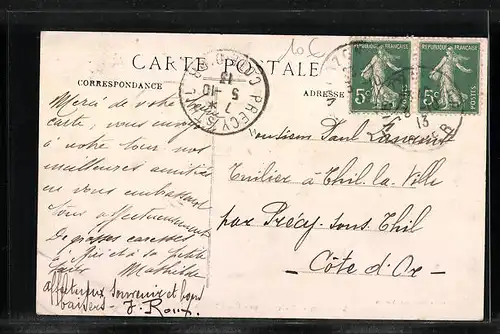 10 C
CARTE POSTALE
CORRESPONDANCE
ADRESSE
REPUBLIQUE FRANÇAISE
5c
POSTES
REPUBLIQUE FRANÇAISE
5c
POSTES
PRECY-S-THIL
COTE D'OR
7
5 -10
13
Merci de votre
carte, vous envoyons
à votre tour nos
meilleures amitiés
en vous embrassant
tous affectueusement
De grosses caresses
à la petite
Mathilde
affectueux souvenirs et bons
baisers - J. Roux.
Monsieur Paul Laurent
Tuilier à Thil-la-Ville
par Précy-sous-Thil
- Côte d'Or -